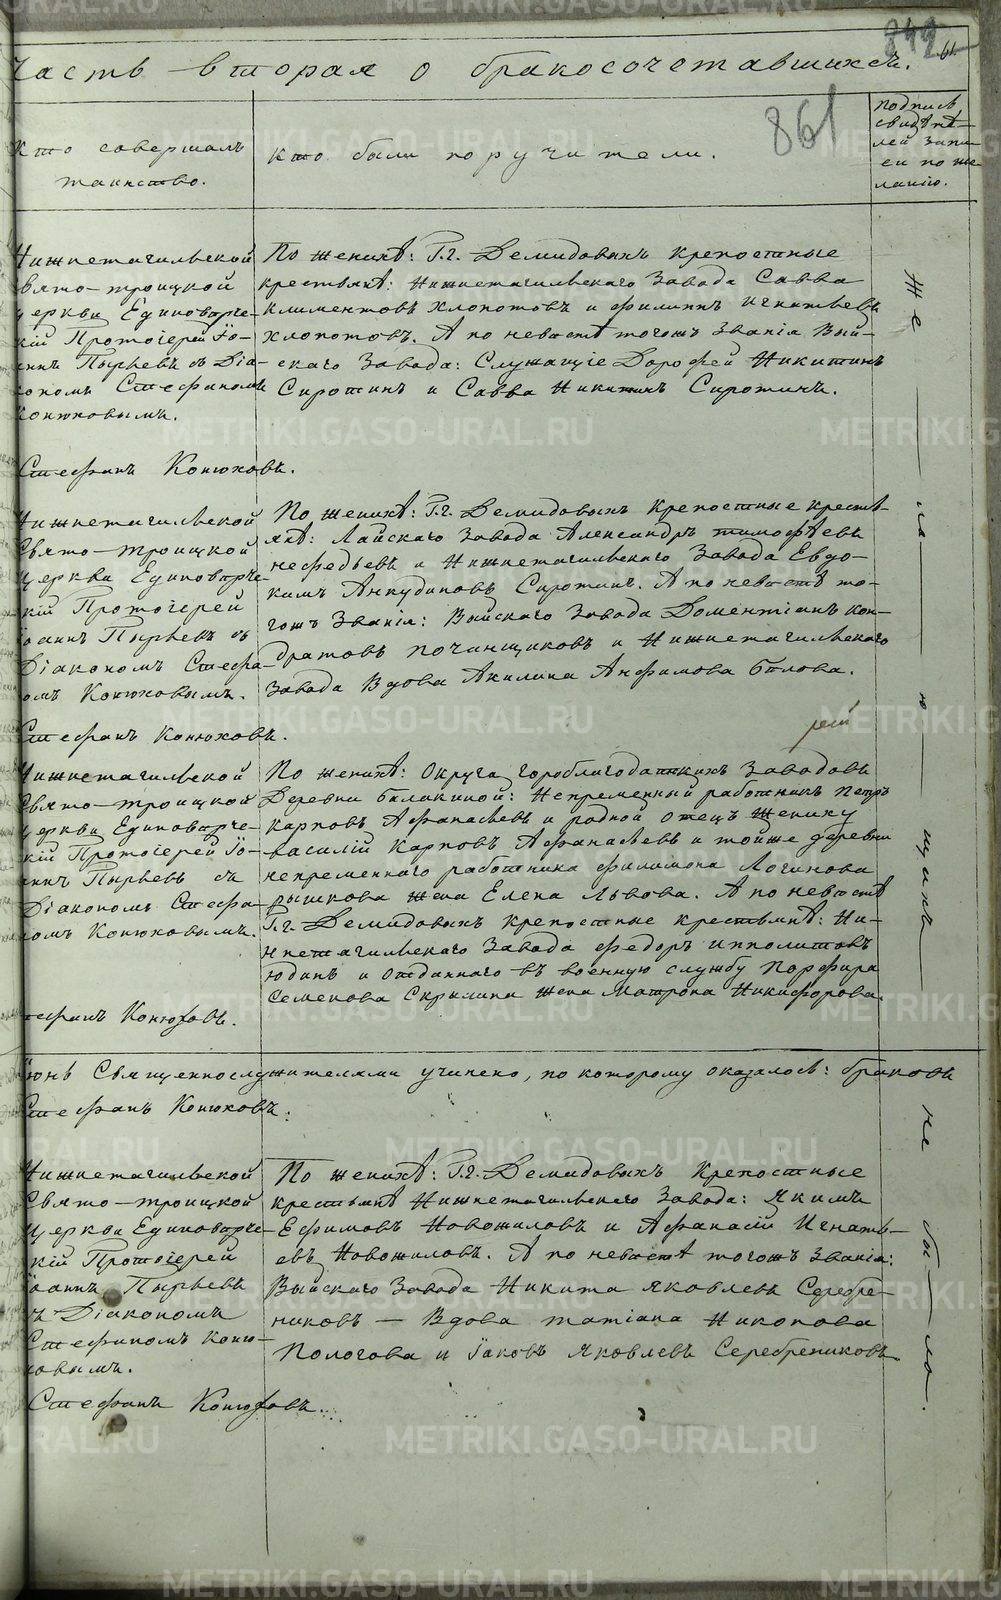 849 61.
Часть вторая о бракосочетавшихся.
861
Кто совершалъ
таинство.
Кто были поручители.
Подпись
свидѣте-
лей запи-
си по же-
ланію.
Нижнетагильской
Свято-Троицкой
церкви Единовѣрче-
скій Протоіерей Іо-
аннъ Пырьевъ съ Діа-
кономъ Стефаномъ
Конюховымъ.
По женихѣ: Г.г. Демидовыхъ крепостные
крестьянѣ: Нижнетагильскаго Завода Савва
Климентовъ Хлопотовъ и Филиппъ Игнатьевъ
Хлопотовъ. А по невѣстѣ тогожъ Званія Вый-
скаго Завода: Служащіе Дорофей Никитинъ
Сиротинъ и Савва Никитинъ Сиротинъ.
Стефанъ Конюховъ.
Нижнетагильской
Свято-Троицкой
церкви Единовѣрче-
скій Протоіерей
Іоаннъ Пырьевъ съ
Діакономъ Стефа-
номъ Конюховымъ.
По женихѣ: Г.г. Демидовыхъ Крепостные кресть-
янѣ: Лайскаго Завода Александръ Тимофѣевъ
Нефедьевъ и Нижнетагильскаго Завода Евдо-
кимъ Анкудиновъ Сиротинъ. А по невѣстѣ то-
гожъ Званія: Выйскаго Завода Доментіанъ Кон-
дратовъ Починщиковъ и Нижнетагильскаго
Завода Вдова Акилина Анфимова Бѣлова.
Стефанъ Конюховъ.
Нижнетагильской
Свято-Троицкой
церкви Единовѣрче-
скій Протоіерей Іо-
аннъ Пырьевъ съ
Діакономъ Стефа-
номъ Конюховымъ.
По женихѣ: Округа Гороблагодатскихъ Заводовъ
Деревни Балакиной: Непременный работникъ Петръ
Карповъ Афанасьевъ и родной отецъ Жениху
Василій Карповъ Афанасьевъ и тойже деревни
непременнаго работника Филимона Логинова
Рышкова жена Елена Львова. А по невѣстѣ
Г.г. Демидовыхъ крепостные крестьянѣ: Ни-
жнетагильскаго Завода Федоръ Ипполитовъ
Юдинъ и отданнаго въ военную службу Порфира
Семенова Скрылина жена Матрона Никифорова.
Стефанъ Конюховъ.
Іюнь Священнослужителями учинено, по которому оказалось: браковъ
Стефанъ Конюховъ.
Нижнетагильской
Свято-Троицкой
церкви Единовѣрче-
скій Протоіерей
Іоаннъ Пырьевъ
съ Діакономъ
Стефаномъ Коню-
ховымъ.
По женихѣ: Г.г. Демидовыхъ Крепостные
крестьянѣ Нижнетагильскаго Завода: Якимъ
Ефимовъ Новожиловъ и Афанасій Игнать-
евъ Новожиловъ. А по невѣстѣ тогожъ Званія:
Выйскаго Завода Никита Яковлевъ Серебре-
никовъ — Вдова Татіана Никонова
Пологова и Іаковъ Яковлевъ Серебрениковъ
Стефанъ Конюховъ.
Же — ла — ю — щихъ — не бы — ло.
METRIKI.GASO-URAL.RU